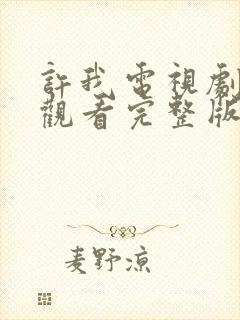 許我電視劇
觀看完整版
麦野凉